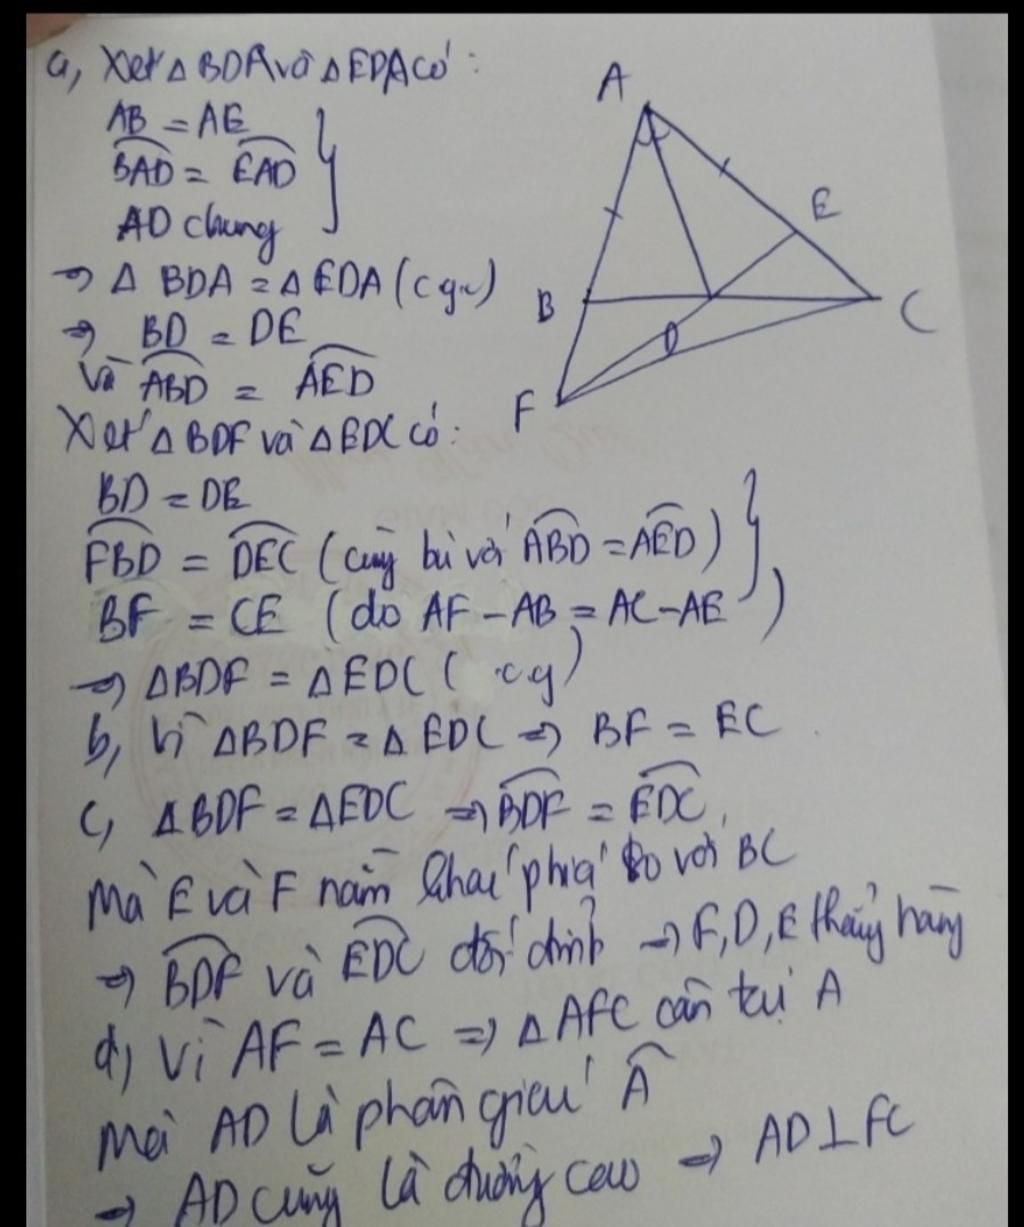 a, Xét △BDA và △EDA có:
AB = AE
BAD = EAD
AD chung
⇒ △ BDA = △ EDA (c g c)
⇒ BD = DE
và ABD = AED
Xét △BDF và △EDC có:
BD = DE
FBD = DEC (cùng bù với ABD = AED)
BF = CE (do AF - AB = AC - AE)
⇒ △BDF = △EDC ( c g)
b, Vì △BDF = △EDC ⇒ BF = EC
c, △BDF = △EDC ⇒ BDF = EDC,
Mà E và F nằm khác phía so với BC
⇒ BDF và EDC đối đỉnh → F, D, E thẳng hàng
d, Vì AF = AC ⇒ △AFC cân tại A
Mà AD là phân giác A
⇒ AD cũng là đường cao ⇒ AD⊥FC
A
E
B
C
D
F